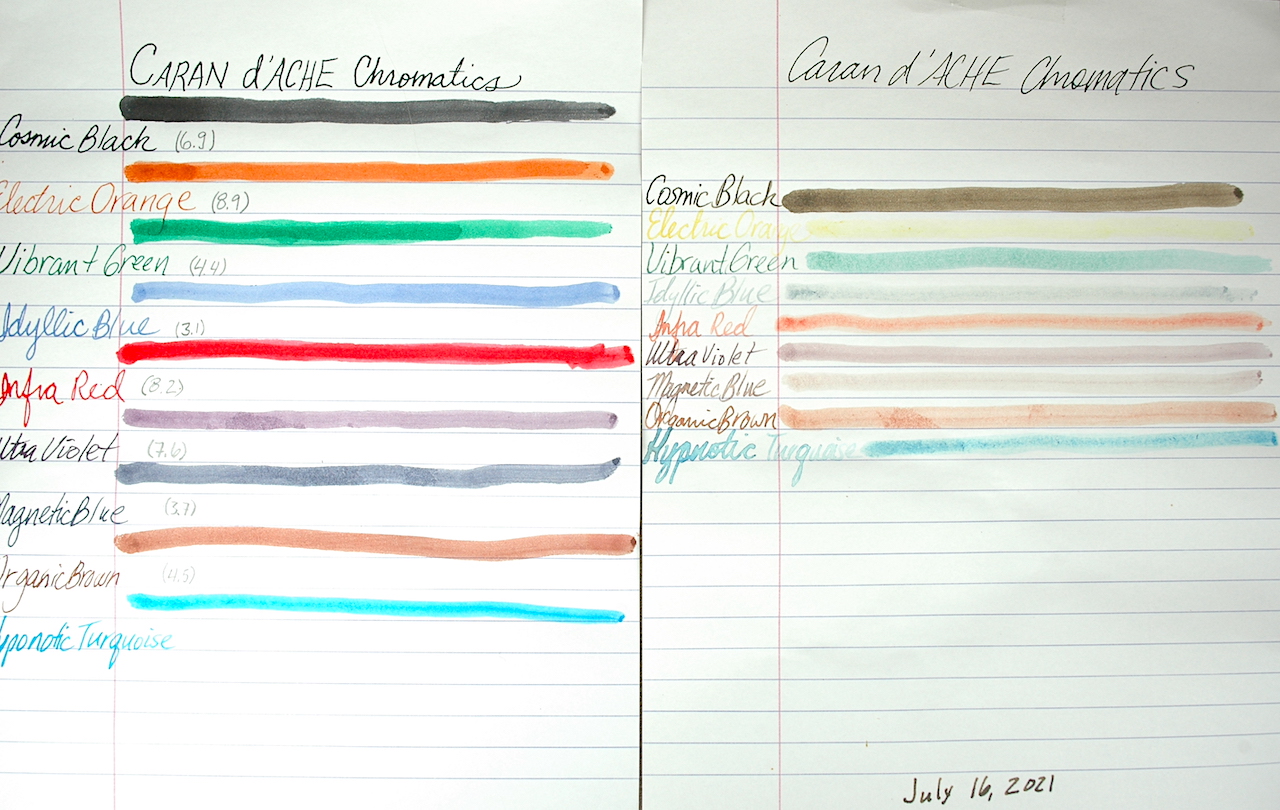 CARAN d'ACHE Chromatics
Cosmic Black (6.9)
Electric Orange (8.9)
Vibrant Green (4.4)
Idyllic Blue (3.1)
Infra Red (8.2)
Ultra Violet (7.6)
Magnetic Blue (3.7)
Organic Brown (4.5)
yponotic Turquoise
Caran d'ACHE Chromatics
Cosmic Black
Electric Orange
Vibrant Green
Idyllic Blue
Infra Red
Ultra Violet
Magnetic Blue
Organic Brown
Hypnotic Turquoise
July 16, 2021